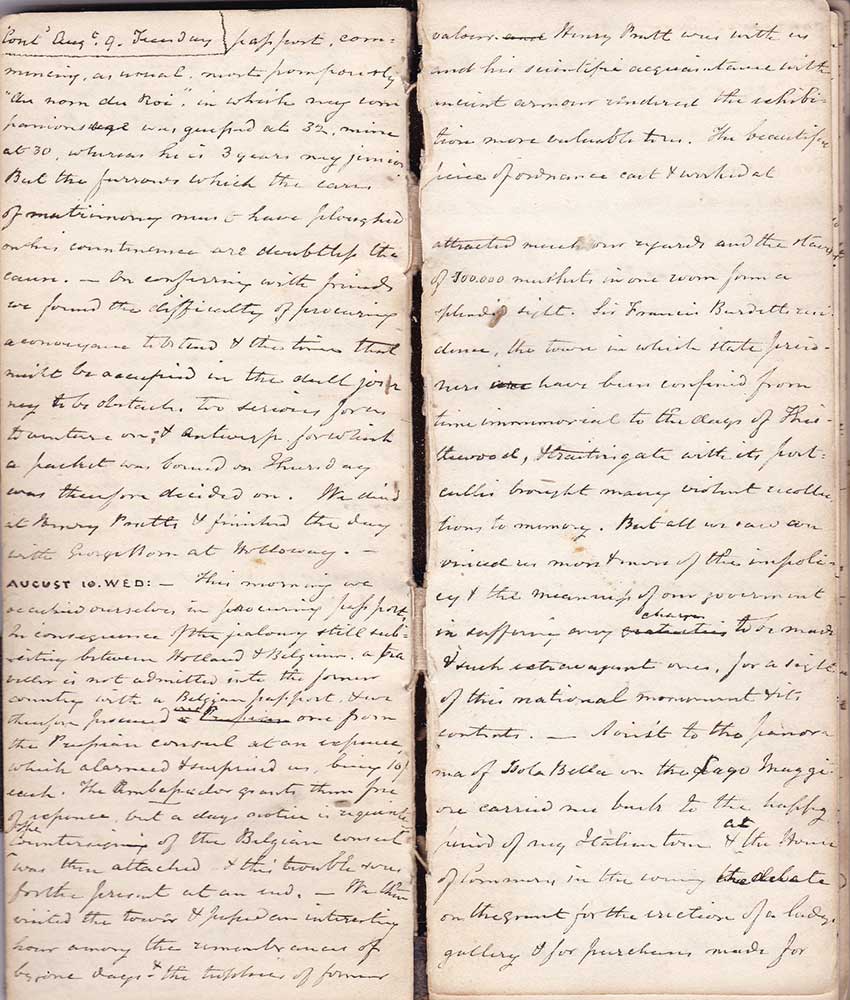 Cont.d Aug.t 9. Tuesday passport, com-
mencing, as usual, most pompously
"Au nom du Roi", in which my com
panions age was guessed at 32, mine
at 30, whereas he is 3 years my junior
But the furrows which the cares
of matrimony must have ploughed
on his countenance are doubtless the
cause. — On conferring with friends
we found the difficulty of procuring
a conveyance to Ostend & the time that
must be occupied in the dull jour
ney to be obstacles too serious for us
to venture on, & Antwerp for which
a packet was bound on Thursday
was therefore decided on. We dined
at Henry Pratts & finished the day
with George at Holloway. —
AUGUST 10. WED: — This morning we
occupied ourselves in procuring passports,
In consequence of the jealousy still sub-
sisting between Holland & Belgium. a tra
veller is not admitted into the former
country with a Belgian passport, & we
therefore procured a Prussian one from
the Prussian consul at an expence
which alarmed & surprised us, being 10/
each. The Ambassador grants them free
of expence, but a days notice is requisite
The countersigning of the Belgian consul
was then attached & this trouble was
for the present at an end. — We then
visited the tower & passed an interesting
hour among the remembrances of
bygone days & the trophies of former
valour. and Henry Pratt was with us
and his scientific acquaintance with
ancient armour rendered the exhibi-
tion more valuable to us. The beautiful
piece of ordnance cast & worked at
attracted much our regards and the stacks
of 300.000 muskets in one room form a
splendid sight. Sir Francis Burdetts resi
dence, the town in which state priso-
ners have been confined from
time immemorial to the days of This-
tlewood, & traitors gate with its port-
cullis brought many violent recollec
tions to memory. But all we saw con
vinced us more & more of the impoli-
cy & the meanness of our government
in suffering any charges to be made
& such extravagant ones, for a sight
of this national monument & its
contents. — A visit to the panora
ma of Isola Bella on the Lago Maggi
ore carried me back to the happy
period of my Italian tour & at the House
of Commons in the evening the debate
on the grant for the erection of a ladys
gallery & for purchases made for